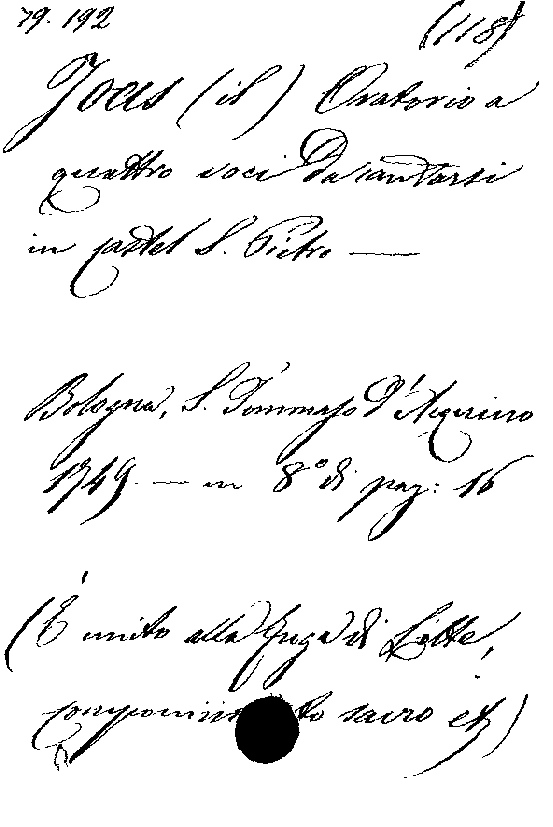 79. 192 (118)
Joas (il) Oratorio a
quattro voci Da cantarsi
in castel S. Pietro —
Bologna, S. Tommaso D'Aquino
1749 — in 8° di pag: 16
(È unito alla fuga di
sacro etc)